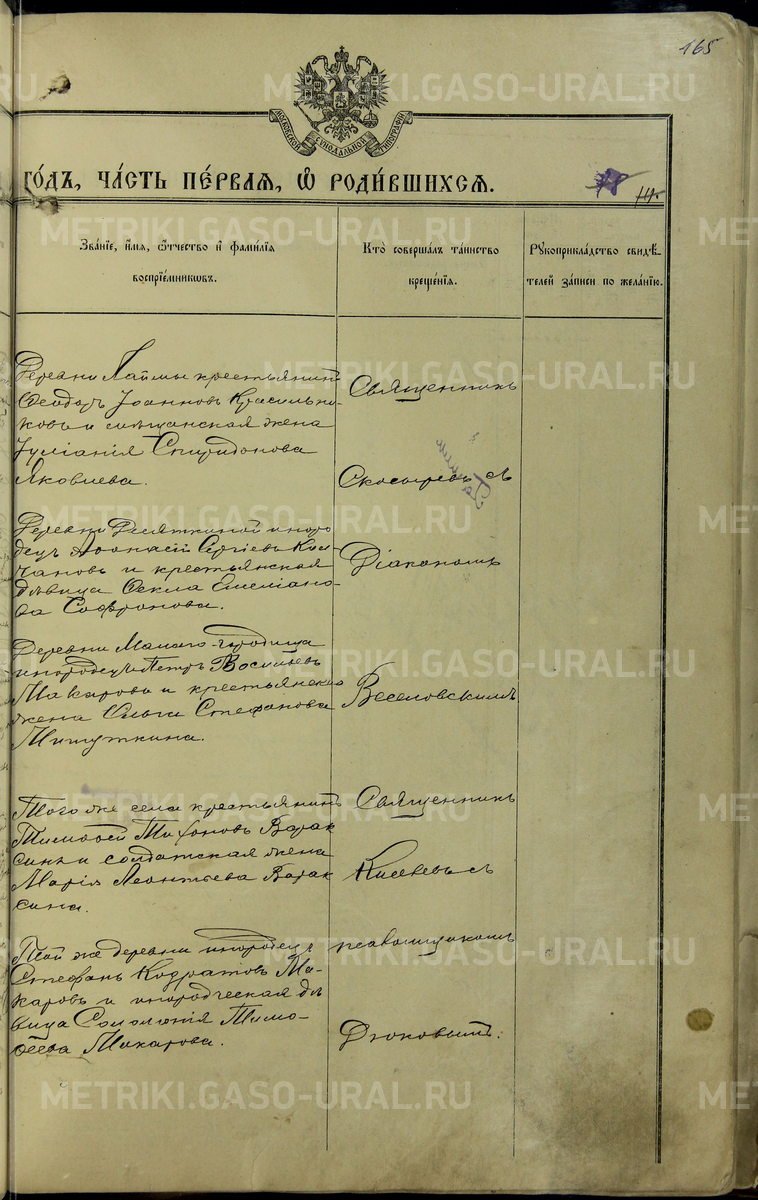 165
МОСКОВСКОЙ СѴНОДАЛЬНОЙ ТИПОГРАФІИ
ГО́ДЪ, ЧА́СТЬ ПЕ́РВАЯ, Ѡ РОДИ́ВШИХСЯ.
Зва́ніе, и́мя, ѻ́тчество и фами́лія
воспріе́мниковъ.
Кто̀ соверша́лъ та́инство
креще́нія.
Рꙋкоприкла́дство свидѣ́-
телей за́писи по жела́нію.
Деревни Лаймы крестьянинъ
Ѳеодоръ Іоанновъ Красильни-
ковъ и мѣщанская жена
Іуліанія Спиридонова
Яковлева.
Священникъ
Скосыревъ съ
Деревни иноро-
децъ Аѳанасій Сергіевъ Кол-
чановъ и крестьянская
дѣвица Ѳекла Емеліано-
ва Софронова.
Діакономъ
Деревни Малаго-городища
инородецъ Петръ Васильевъ
Макаровъ и крестьянская
жена Ольга Стефанова
Митуткина.
Веселовскимъ
Того же села крестьянинъ
Тимоѳей Тихоновъ Варак
синъ и солдатская жена
Марія Леонтьева Варак
сина.
Священникъ
Киселевъ съ
Той же деревни инородецъ
Стефанъ Кодратовъ Ма-
каровъ и инородческая дѣ
вица Соломонія Тимо-
ѳеева Макарова.
псаломщикомъ
Дюковымъ.
METRIKI.GASO-URAL.RU